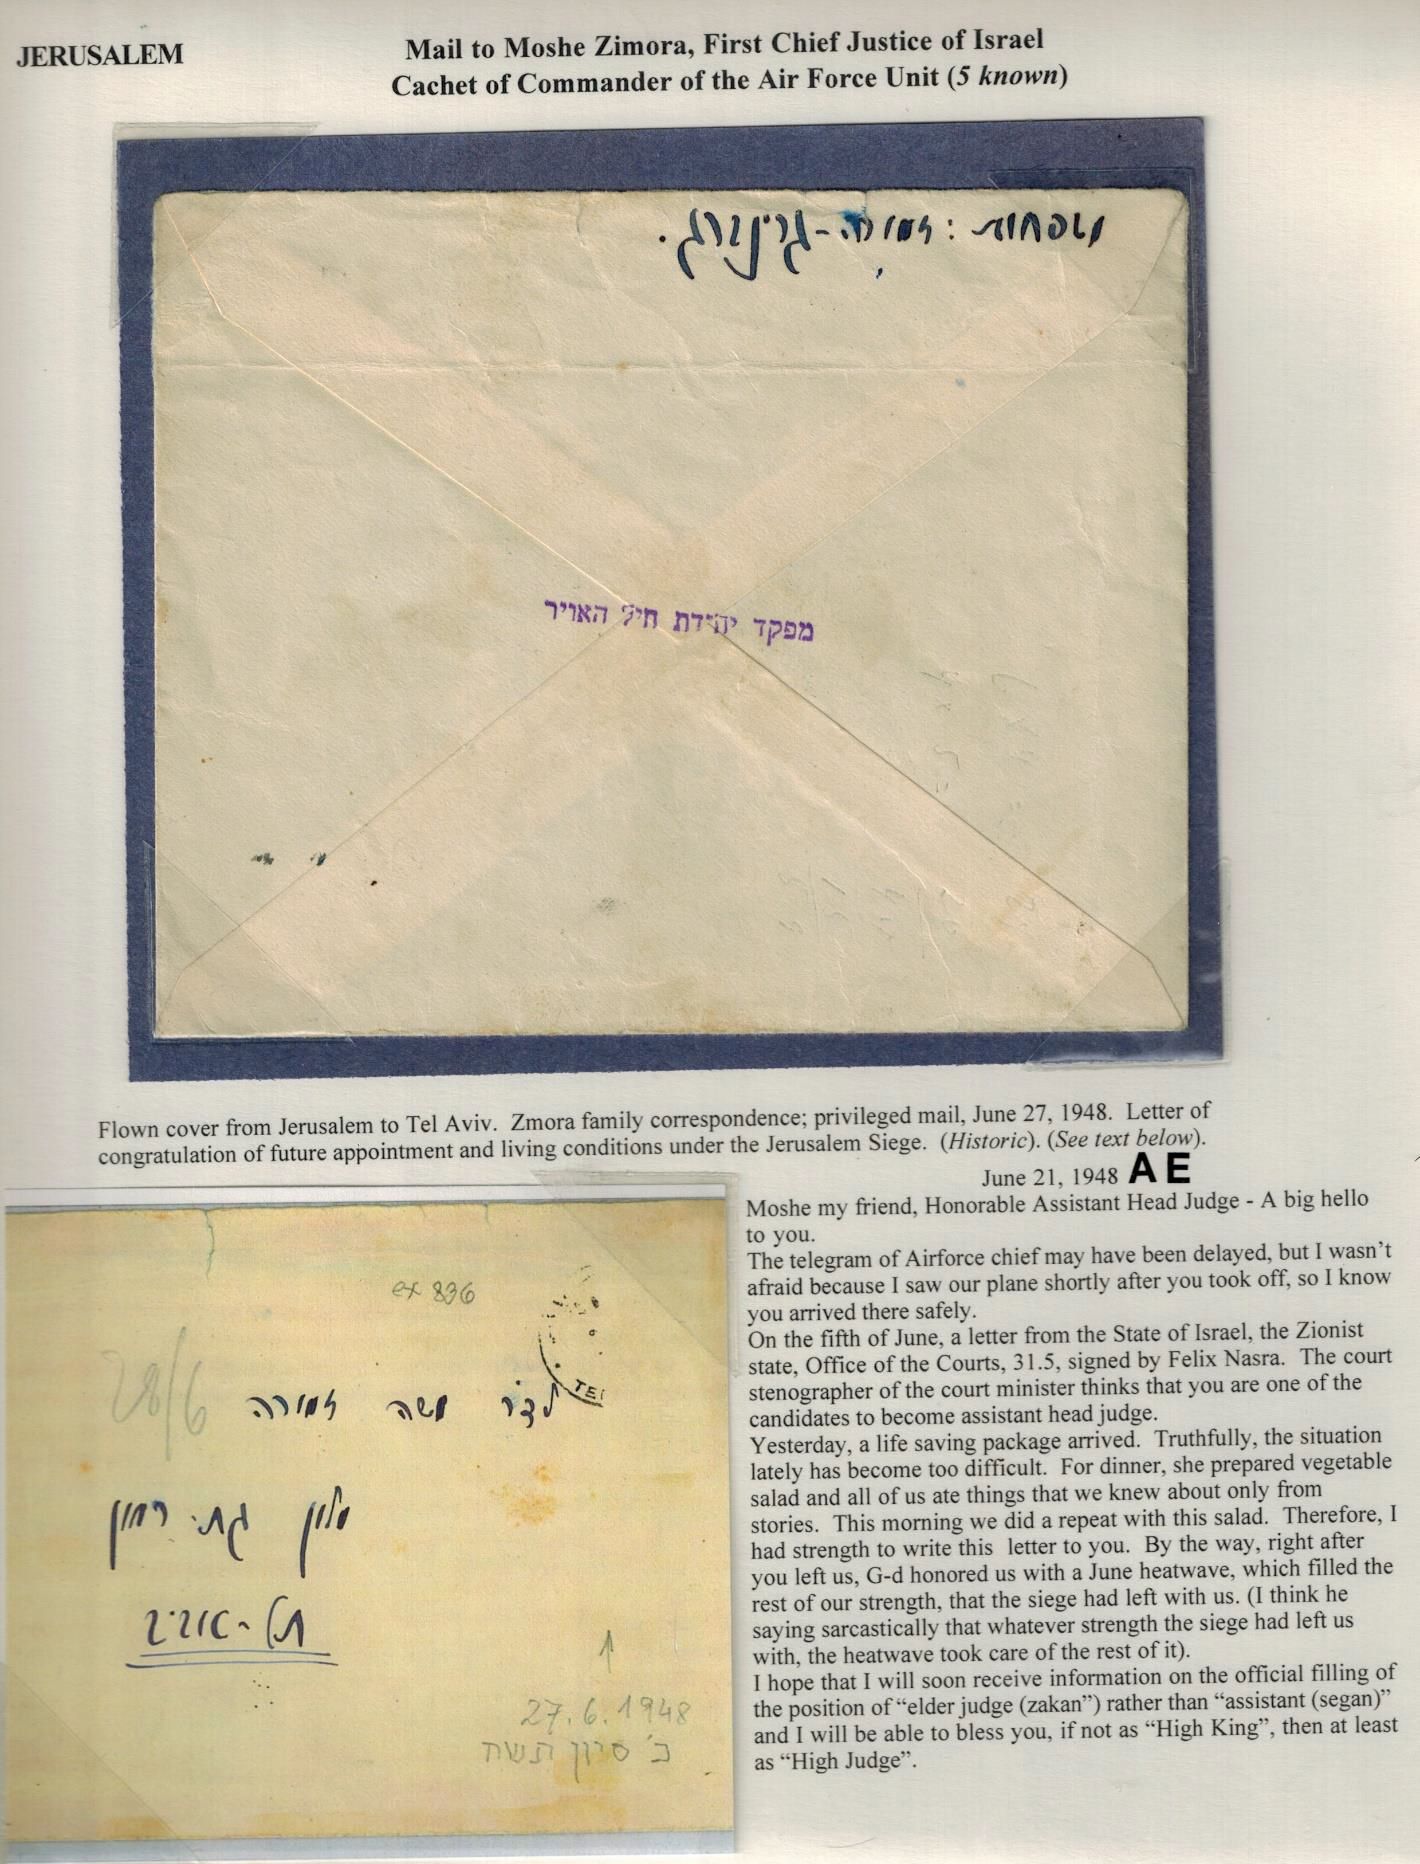 JERUSALEM
Mail to Moshe Zimora, First Chief Justice of Israel
Cachet of Commander of the Air Force Unit (5 known)
משפחות: זמורה-גרינברג.
מפקד יחידת חיל האויר
Flown cover from Jerusalem to Tel Aviv. Zmora family correspondence; privileged mail, June 27, 1948. Letter of
congratulation of future appointment and living conditions under the Jerusalem Siege. (Historic). (See text below).
June 21, 1948 AE
Moshe my friend, Honorable Assistant Head Judge - A big hello
to you.
The telegram of Airforce chief may have been delayed, but I wasn't
afraid because I saw our plane shortly after you took off, so I know
you arrived there safely.
On the fifth of June, a letter from the State of Israel, the Zionist
state, Office of the Courts, 31.5, signed by Felix Nasra. The court
stenographer of the court minister thinks that you are one of the
candidates to become assistant head judge.
Yesterday, a life saving package arrived. Truthfully, the situation
lately has become too difficult. For dinner, she prepared vegetable
salad and all of us ate things that we knew about only from
stories. This morning we did a repeat with this salad. Therefore, I
had strength to write this letter to you. By the way, right after
you left us, G-d honored us with a June heatwave, which filled the
rest of our strength, that the siege had left with us. (I think he
saying sarcastically that whatever strength the siege had left us
with, the heatwave took care of the rest of it).
I hope that I will soon receive information on the official filling of
the position of "elder judge (zakan") rather than "assistant (segan)"
and I will be able to bless you, if not as "High King", then at least
as "High Judge".
ex 836
TEL
28/6
לד"ר משה זמורה
מלון גת רמון
תל-אביב
27.6.1948
כ' סיון תש"ח